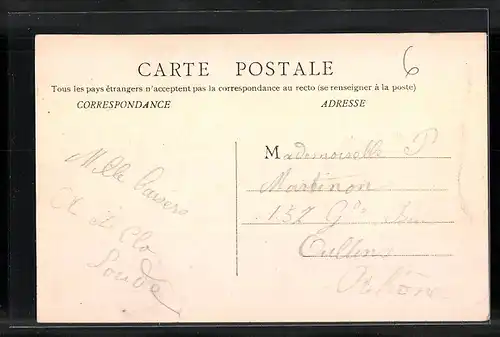 6
CARTE POSTALE
Tous les pays étrangers n'acceptent pas la correspondance au recto (se renseigner à la poste)
CORRESPONDANCE
ADRESSE
Mademoiselle P
Martinon
Mille baisers
Oullins
Rhône